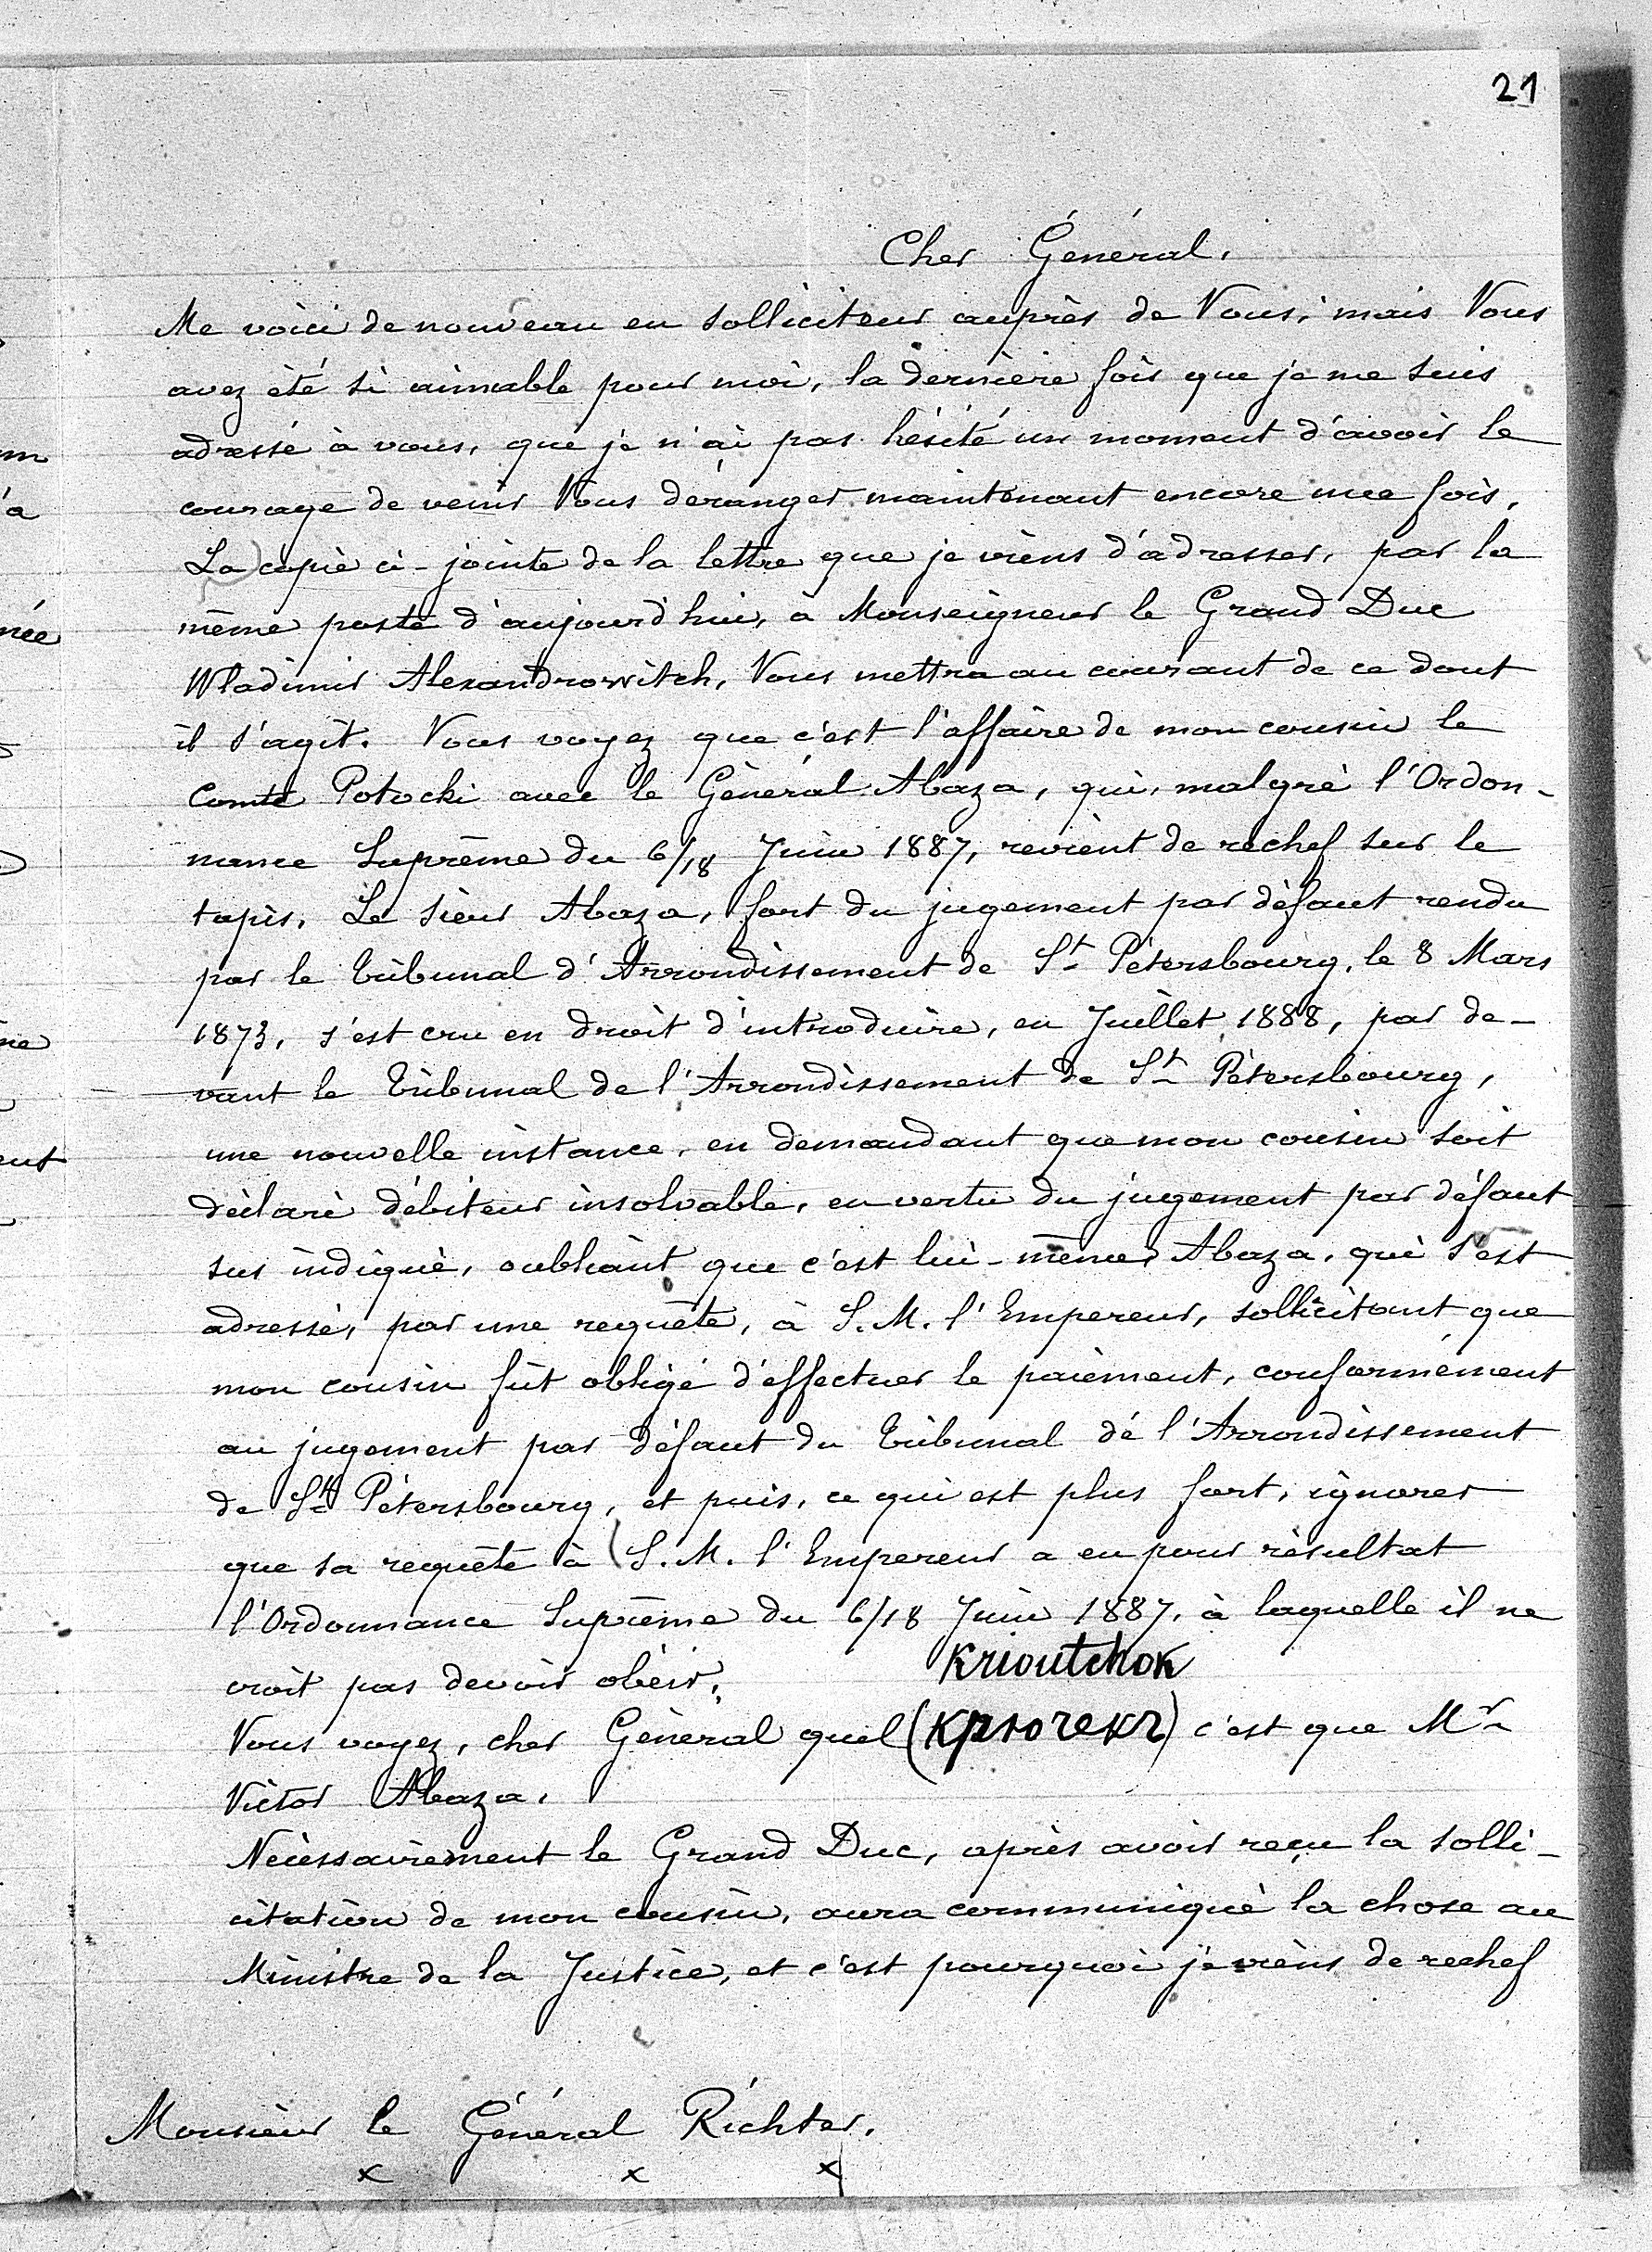 21
Cher Général,
Me voici de nouveau en solliciteur auprès de Vous; mais Vous
avez été si aimable pour moi, la dernière fois que je me suis
adressé à vous, que je n'ai pas hésité un moment d'avoir le
courage de venir Vous déranger maintenant encore une fois.
La copie ci-jointe de la lettre que je viens d'adresser, par la
même poste d'aujourd'hui, à Monseigneur le Grand Duc
Wladimir Alexandrowitch, Vous mettra au courant de ce dont
il s'agit. Vous voyez que c'est l'affaire de mon cousin le
Comte Potocki avec le Général Abaza, qui, malgré l'Ordon-
nance Suprême du 6/18 Juin 1887, revient de rechef sur le
tapis. Le sieur Abaza, fort du jugement par défaut rendu
par le Tribunal d'Arrondissement de St Pétersbourg, le 8 Mars
1873, s'est cru en droit d'introduire, en Juillet 1888, par de-
vant le Tribunal de l'Arrondissement de St Pétersbourg,
une nouvelle instance, en demandant que mon cousin soit
déclaré débiteur insolvable, en vertu du jugement par défaut
sus indiqué, oubliant que c'est lui-même, Abaza, qui s'est
adressé, par une requête, à S. M. l'Empereur, sollicitant que
mon cousin fût obligé d'effectuer le paiement, conformément
au jugement par défaut du Tribunal de l'Arrondissement
de St Pétersbourg, et puis, ce qui est plus fort, ignorer
que sa requête à S. M. l'Empereur a eu pour résultat
l'Ordonnance Suprême du 6/18 Juin 1887, à laquelle il ne
croit pas devoir obéir.
Krioutchok
Vous voyez, cher Général quel (крючекъ) c'est que Mr
Victor Abaza.
Nécessairement le Grand Duc, après avoir reçu la solli-
citation de mon cousin, aura communiqué la chose au
Ministre de la Justice, et c'est pourquoi je viens de rechef
Monsieur le Général Richter.
x x x